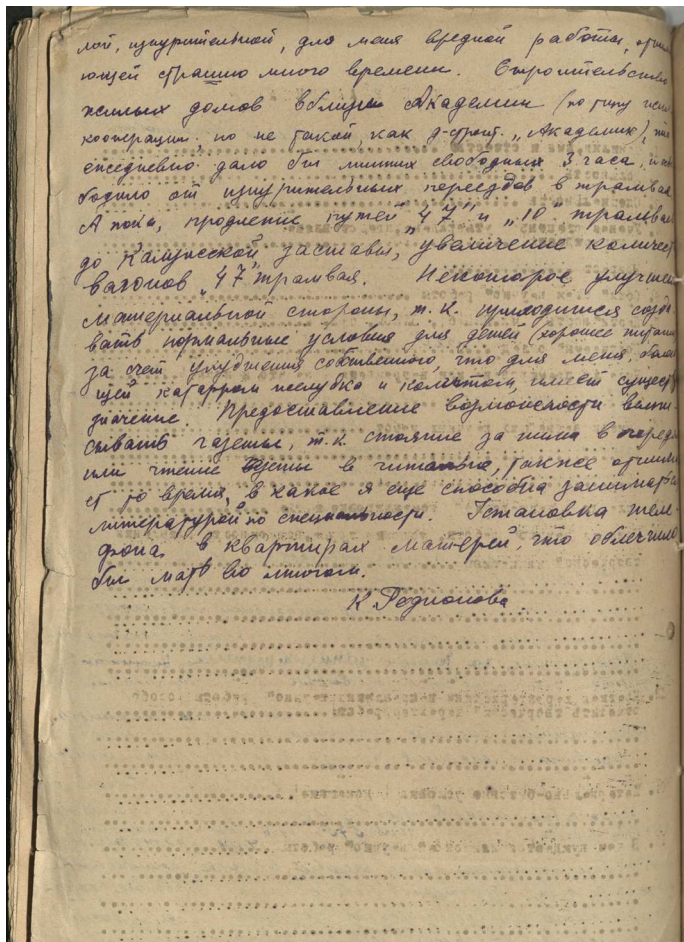 лой, изнурительной, для меня вредной работы, отни-
ющей страшно много времени. Строительство
жилых домов вблизи Академии (по типу
кооперации, но не такой, как д-строит. „Академик),
ежедневно дало бы лишних свободных 3 часа,
бодило от изнурительных переездов в трамвае
А пока, продление путей „47" и „10" трамвая
до Калужской заставы, увеличение количес
вагонов „47" трамвая. Некоторое улучшен
материальной стороны, т.к. приходится созда
вать нормальные условия для детей (хорошее питание
за счет ухудшения собственного, что для меня, болею
щей катарром желудка и колитом, имеет существ
значение. Предоставление возможности выпи
сывать газеты, т.к. стояние за ними в очереди
или чтение газеты в читальне, также отнима
ет то время, в какое я еще способна заниматься
литературой по специальности. Установка теле-
фона в квартирах матерей, что облегчило
бы мать во многом.
К Родионова